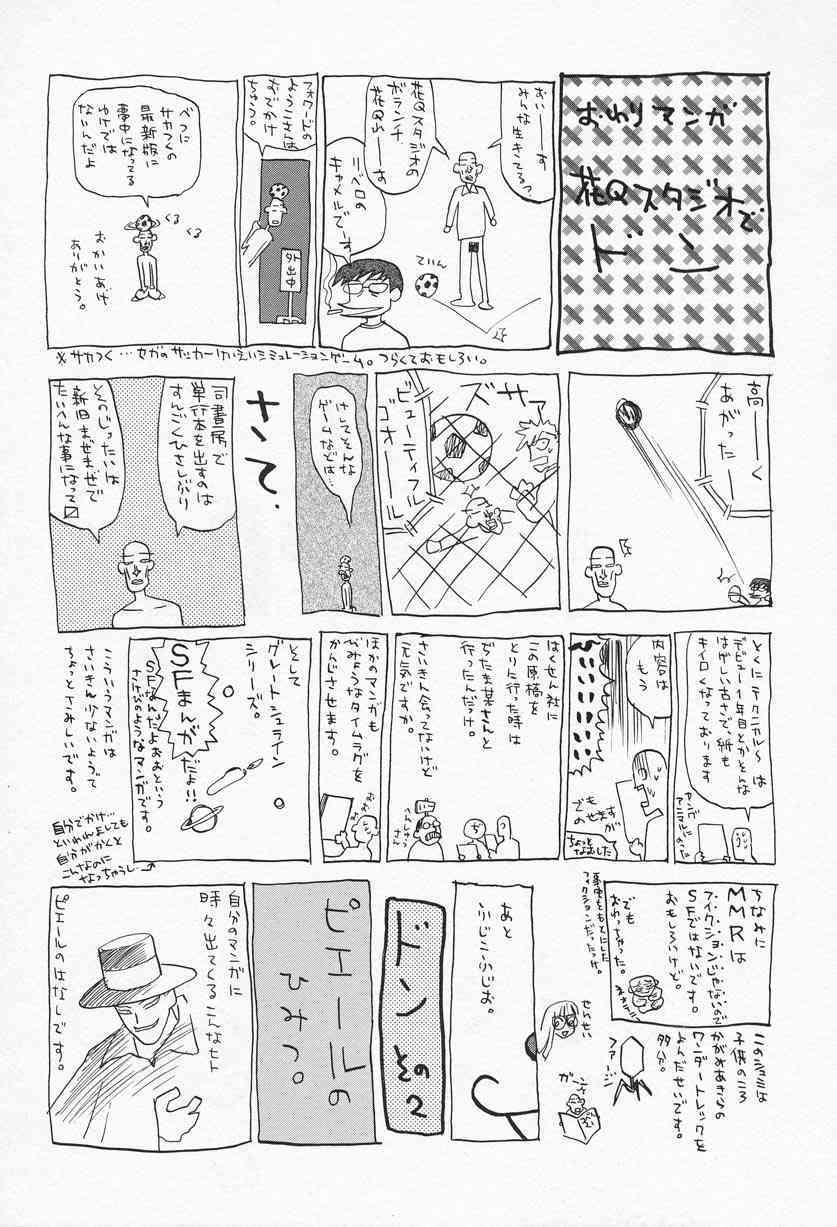 おわりマンガ
花Qスタジオで
ドン
おいーーす
みんな生きてるっ
花Qスタジオの
ボランチ、
花Q山ーす
リベロの
キャメルでーす
ていん
フォワードの
ようこさんは
おでかけ
ちゅう。
外出中
べつに
サカつくの
最新版に
夢中になってる
わけでは
ないんだよ
くる
くる
おかいあげ、
ありがとう。
※サカつく…セガのサッカーけいえいシミュレーションゲーム。つらくておもしろい。
高ーーく
あがったーー
ズサァ
ビューティフル
ゴオール
けしてそんな
ゲームなどは…
さて、
司書房で
単行本を出すのは
すんごくひさしぶり
そのじったいは
新旧まぜまぜで
たいへんな事になって
とくにテクニカル〜は
デビュー1年目とかそんな
はげしい古さで、紙も
キイロくなっております
ヤング
アニマルにのった
内容は
もう
でも
のせますが
ちょっと
なおした
はくせん社に
この原稿を
とりに行った時は
ぢたま某さんと
行ったんだっけ。
さいきん会ってないけど
元気ですか。
ぢ
へんしゅう
さん
ほかのマンガも
びみょうなタイムラグを
かんじさせます。
おお
そして
グレートシュライン
シリーズ。
SFまんがだよ!!
SFなんだよおおという
さけびのようなマンガです。
こういうマンガは
さいきん少ないようで
ちょっとさみしいです。
自分でかけ…
といわれんましても
自分がかくと
こんなのに
なっちゃうしー
ちなみに
MMRは
フィクションじゃないので
SFではないです。
おもしろいけど。
でも
おわっちゃった。
事実をもとにした
フィクションだったっけ。
このシュミは
子供のころ
かがみあきらの
ワンダートレックを
よんだせいです。
多分。
せんせい
ファージ
ガーン
あと
ふじこふじお。
ドン
その
2
ピエールの
ひみつ。
自分のマンガに
時々出てくるこんなヒト
ピエールのはなしです。